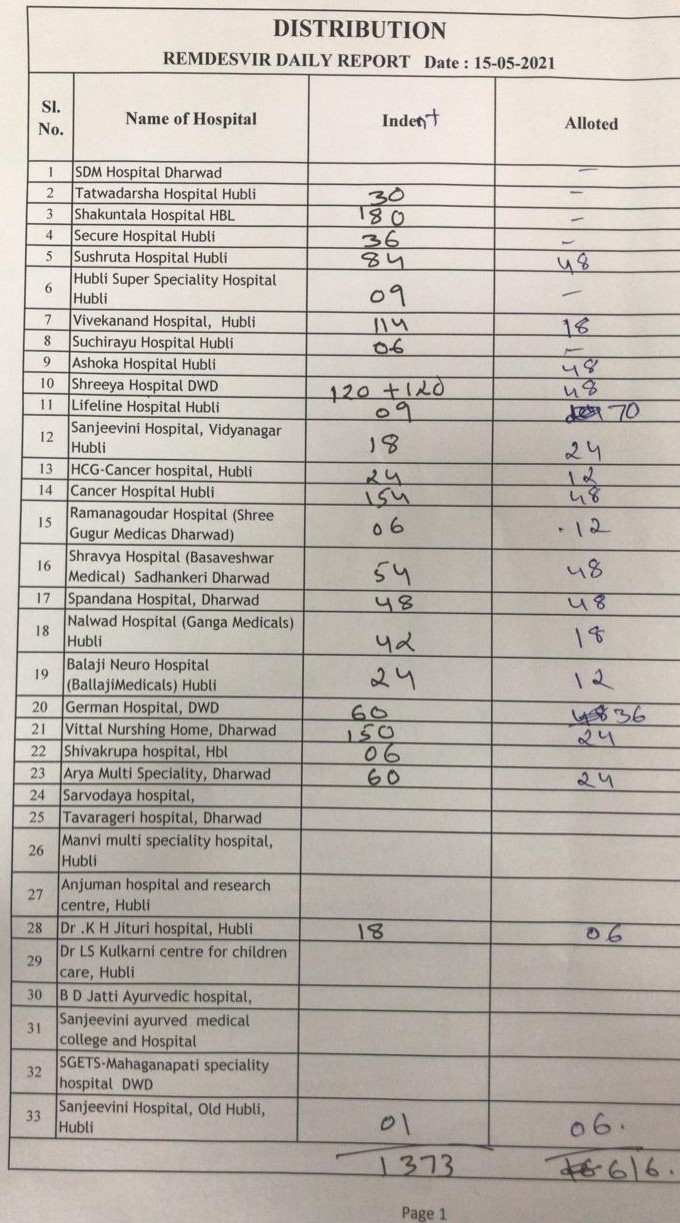 DISTRIBUTION
REMDESVIR DAILY REPORT Date : 15-05-2021
Sl. No. Name of Hospital Indent Alloted
1 SDM Hospital Dharwad –
2 Tatwadarsha Hospital Hubli 30 –
3 Shakuntala Hospital HBL 180 –
4 Secure Hospital Hubli 36 –
5 Sushruta Hospital Hubli 84 48
6 Hubli Super Speciality Hospital
Hubli 09 –
7 Vivekanand Hospital, Hubli 114 18
8 Suchirayu Hospital Hubli 06 –
9 Ashoka Hospital Hubli 48
10 Shreeya Hospital DWD 120 + 120 48
11 Lifeline Hospital Hubli 09 70
12 Sanjeevini Hospital, Vidyanagar
Hubli 18 24
13 HCG-Cancer hospital, Hubli 24 12
14 Cancer Hospital Hubli 154 48
15 Ramanagoudar Hospital (Shree
Gugur Medicas Dharwad) 06 12
16 Shravya Hospital (Basaveshwar
Medical) Sadhankeri Dharwad 54 48
17 Spandana Hospital, Dharwad 48 48
18 Nalwad Hospital (Ganga Medicals)
Hubli 42 18
19 Balaji Neuro Hospital
(BallajiMedicals) Hubli 24 12
20 German Hospital, DWD 60 36
21 Vittal Nurshing Home, Dharwad 150 24
22 Shivakrupa hospital, Hbl 06
23 Arya Multi Speciality, Dharwad 60 24
24 Sarvodaya hospital,
25 Tavarageri hospital, Dharwad
26 Manvi multi speciality hospital,
Hubli
27 Anjuman hospital and research
centre, Hubli
28 Dr .K H Jituri hospital, Hubli 18 06
29 Dr LS Kulkarni centre for children
care, Hubli
30 B D Jatti Ayurvedic hospital,
31 Sanjeevini ayurved medical
college and Hospital
32 SGETS-Mahaganapati speciality
hospital DWD
33 Sanjeevini Hospital, Old Hubli,
Hubli 01 06.
1373 616.
Page 1